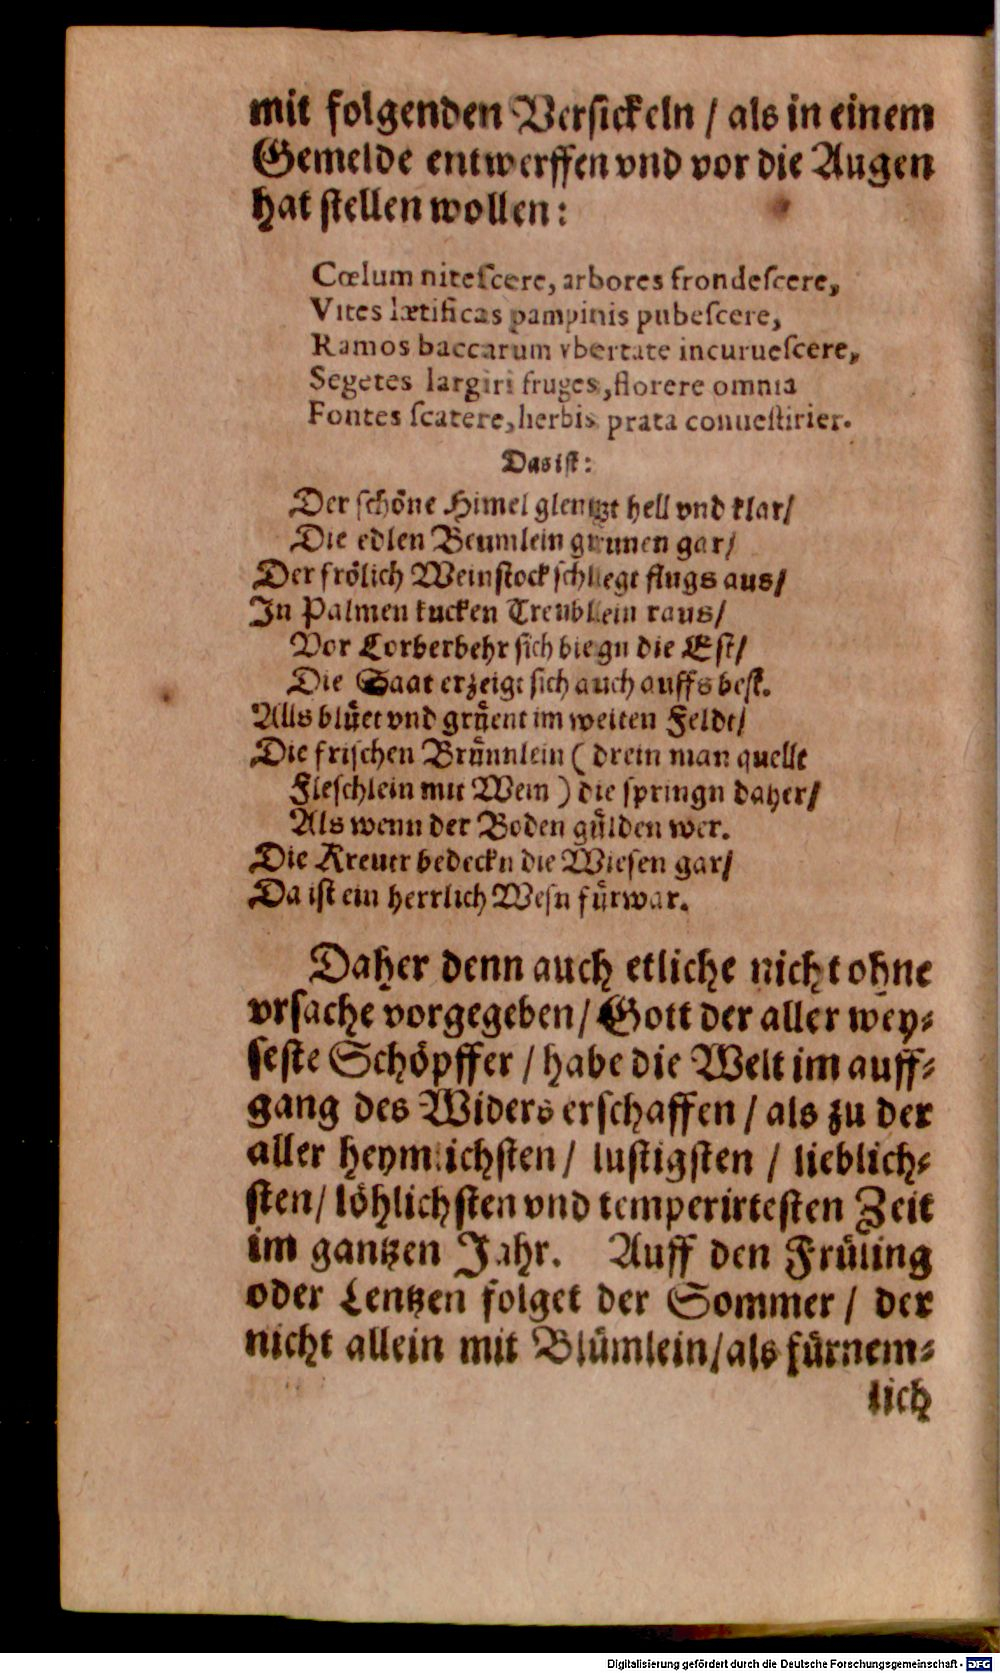 mit folgenden Versickeln / als in einem
Gemelde entwerffen vnd vor die Augen
hat stellen wollen:
Cœlum niteſcere, arbores frondeſcere,
Vites lætificas pampinis pubeſcere,
Ramos baccarum vbertate incurueſcere,
Segetes largiri fruges, florere omnia
Fontes ſcatere, herbis prata conueſtirier.
Das iſt:
Der ſchöne Himel glentzt hell vnd klar/
Die edlen Beumlein grunen gar/
Der frölich Weinſtock ſchlegt flugs aus/
In Palmen kucken Treublein raus/
Vor Lorberbehr ſich biegn die Eſt/
Die Saat erzeigt ſich auch auffs beſt.
Alls blüet vnd grüent im weiten Feldt/
Die friſchen Brünnlein ( drein man quellt
Fleſchlein mit Wein ) die ſpringn daher/
Als wenn der Boden gülden wer.
Die Kreuter bedeckn die Wieſen gar/
Da iſt ein herrlich Weſn fürwar.
Daher denn auch etliche nicht ohne
vrſache vorgegeben/ Gott der aller wey⸗
ſeſte Schöpffer / habe die Welt im auff⸗
gang des Widers erſchaffen / als zu der
aller heymlichſten / luſtigſten / lieblich⸗
ſten/ löhlichſten vnd temperirteſten Zeit
im gantzen Jahr. Auff den Früling
oder Lentzen folget der Sommer / der
nicht allein mit Blümlein/ als fürnem⸗
lich
Digitalisierung gefördert durch die Deutsche Forschungsgemeinschaft - DFG